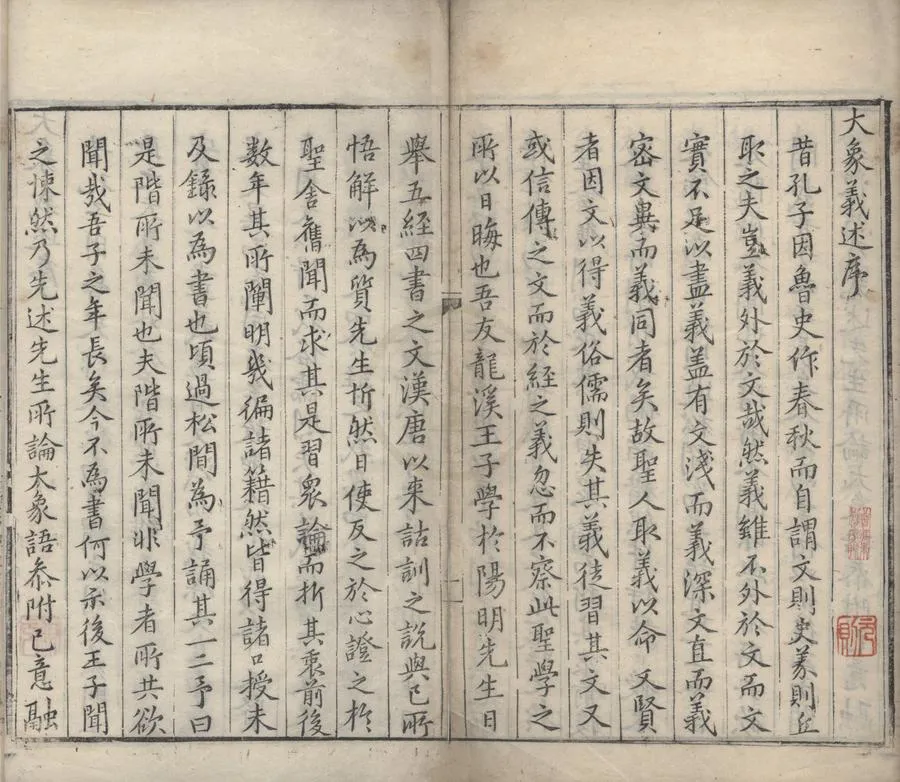 大象義述序
昔孔子因魯史作春秋而自謂文則史義則丘
取之夫豈義外於文哉然義雖不外於文而文
實不足以盡義盖有文淺而義深文直而義
密文異而義同者矣故聖人取義以命文賢
者因文以得義俗儒則失其義徒習其文又
或信傳之文而於經之義忽而不察此聖學之
所以日晦也吾友龍溪王子學於陽明先生日
舉五經四書之文漢唐以来詁訓之說與已所
悟解以為質先生忻然曰使反之於心證之於
聖舍舊聞而求其是習衆論而折其衷前後
數年其所闡明幾徧諸籍然皆得諸口授未
及錄以為書也頃過松間為予誦其一二予曰
是階所未聞也夫階所未聞非學者所共欲
聞哉吾子之年長矣今不為書何以示後王子聞
之悚然乃先述先生所論大象語叅附已意融